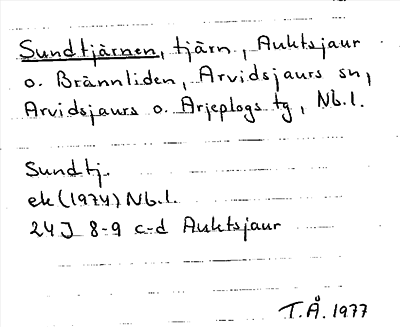 Sundtjärnen, tjärn, Auktsjaur
o. Brännliden, Arvidsjaurs sn,
Arvidsjaurs o. Arjeplogs tg, Nb.l.
Sundtj.
ek (1974) Nb.l.
24J 8-9 c-d Auktsjaur
T.Å. 1977